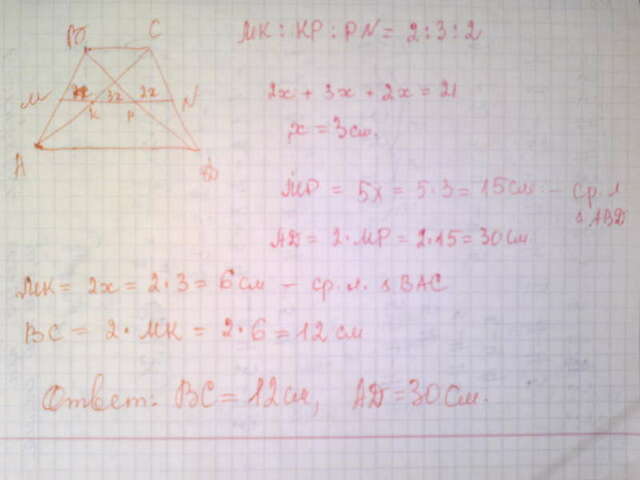 B C
M 2x 3x 2x N
K P
A D
MK : KP : PN = 2:3:2
2x + 3x + 2x = 21
x = 3 см.
MP = 5x = 5·3 = 15 см — ср. л
Δ ABD
AD = 2·MP = 2·15 = 30 см
MK = 2x = 2·3 = 6 см — ср. л. Δ BAC
BC = 2·MK = 2·6 = 12 см
Ответ: BC = 12 см, AD = 30 см.